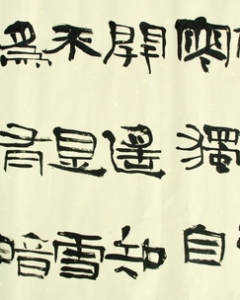 寒獨自
開遙知
不是雪
為有暗